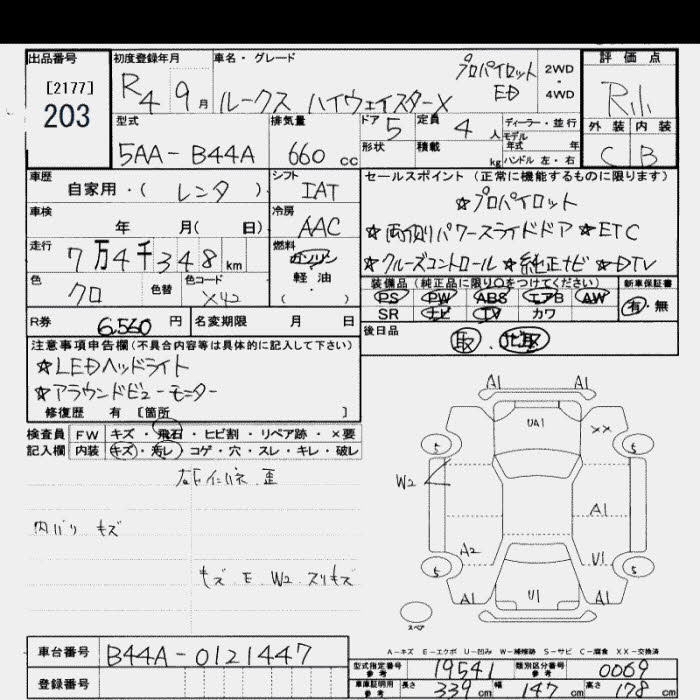 出品番号
[2177]
203
初度登録年月
R4 9月
車名・グレード
ルークス ハイウェイスターX
プロパイロット
ED
2WD
・
4WD
評価点
外装 内装
C B
型式
5AA-B44A
排気量
660 cc
ドア
5
定員
4人
形状
積載
kg
ディーラー・並行
モデル
年式 年
ハンドル 左・右
車歴
自家用・( レンタ )
シフト
IAT
車検
年 月( 日)
冷房
AAC
走行
7万4千348 km
燃料
ガソリン
・
軽油
( )
色
クロ
色替
色コード
X42
セールスポイント(正常に機能するものに限ります)
☆プロパイロット
☆両側パワースライドドア ☆ETC
☆クルーズコントロール ☆純正ナビ ☆DTV
装備品(純正品に限り○をつけてください)
PS PW ABS エアB AW
SR ナビ TV カワ
新車保証書
有・無
R券
6,560 円
名変期限 月 日
後日品
取
注意事項申告欄(不具合内容等は具体的に記入して下さい)
☆LEDヘッドライト
☆アラウンドビューモニター
修復歴 有 [箇所 ]
検査員
記入欄
FW キズ・飛石・ヒビ割・リペア跡・×要
内装 キズ・汚レ・コゲ・穴・スレ・キレ・破レ
内バリ キズ
キズ E W2 スリキズ
A1 A1
UA1
××
5 5
W2
A1
A2
U1
5 5
A1 U1 A1
スペア
A-キズ E-エクボ U-凹み W-補修跡 S-サビ C-腐食 XX-交換済
車台番号
B44A-0121447
登録番号
型式指定番号
参考
19541
類別区分番号
参考
0069
車庫証明用
参考
長さ 339 cm 幅 147 cm 高さ 178 cm